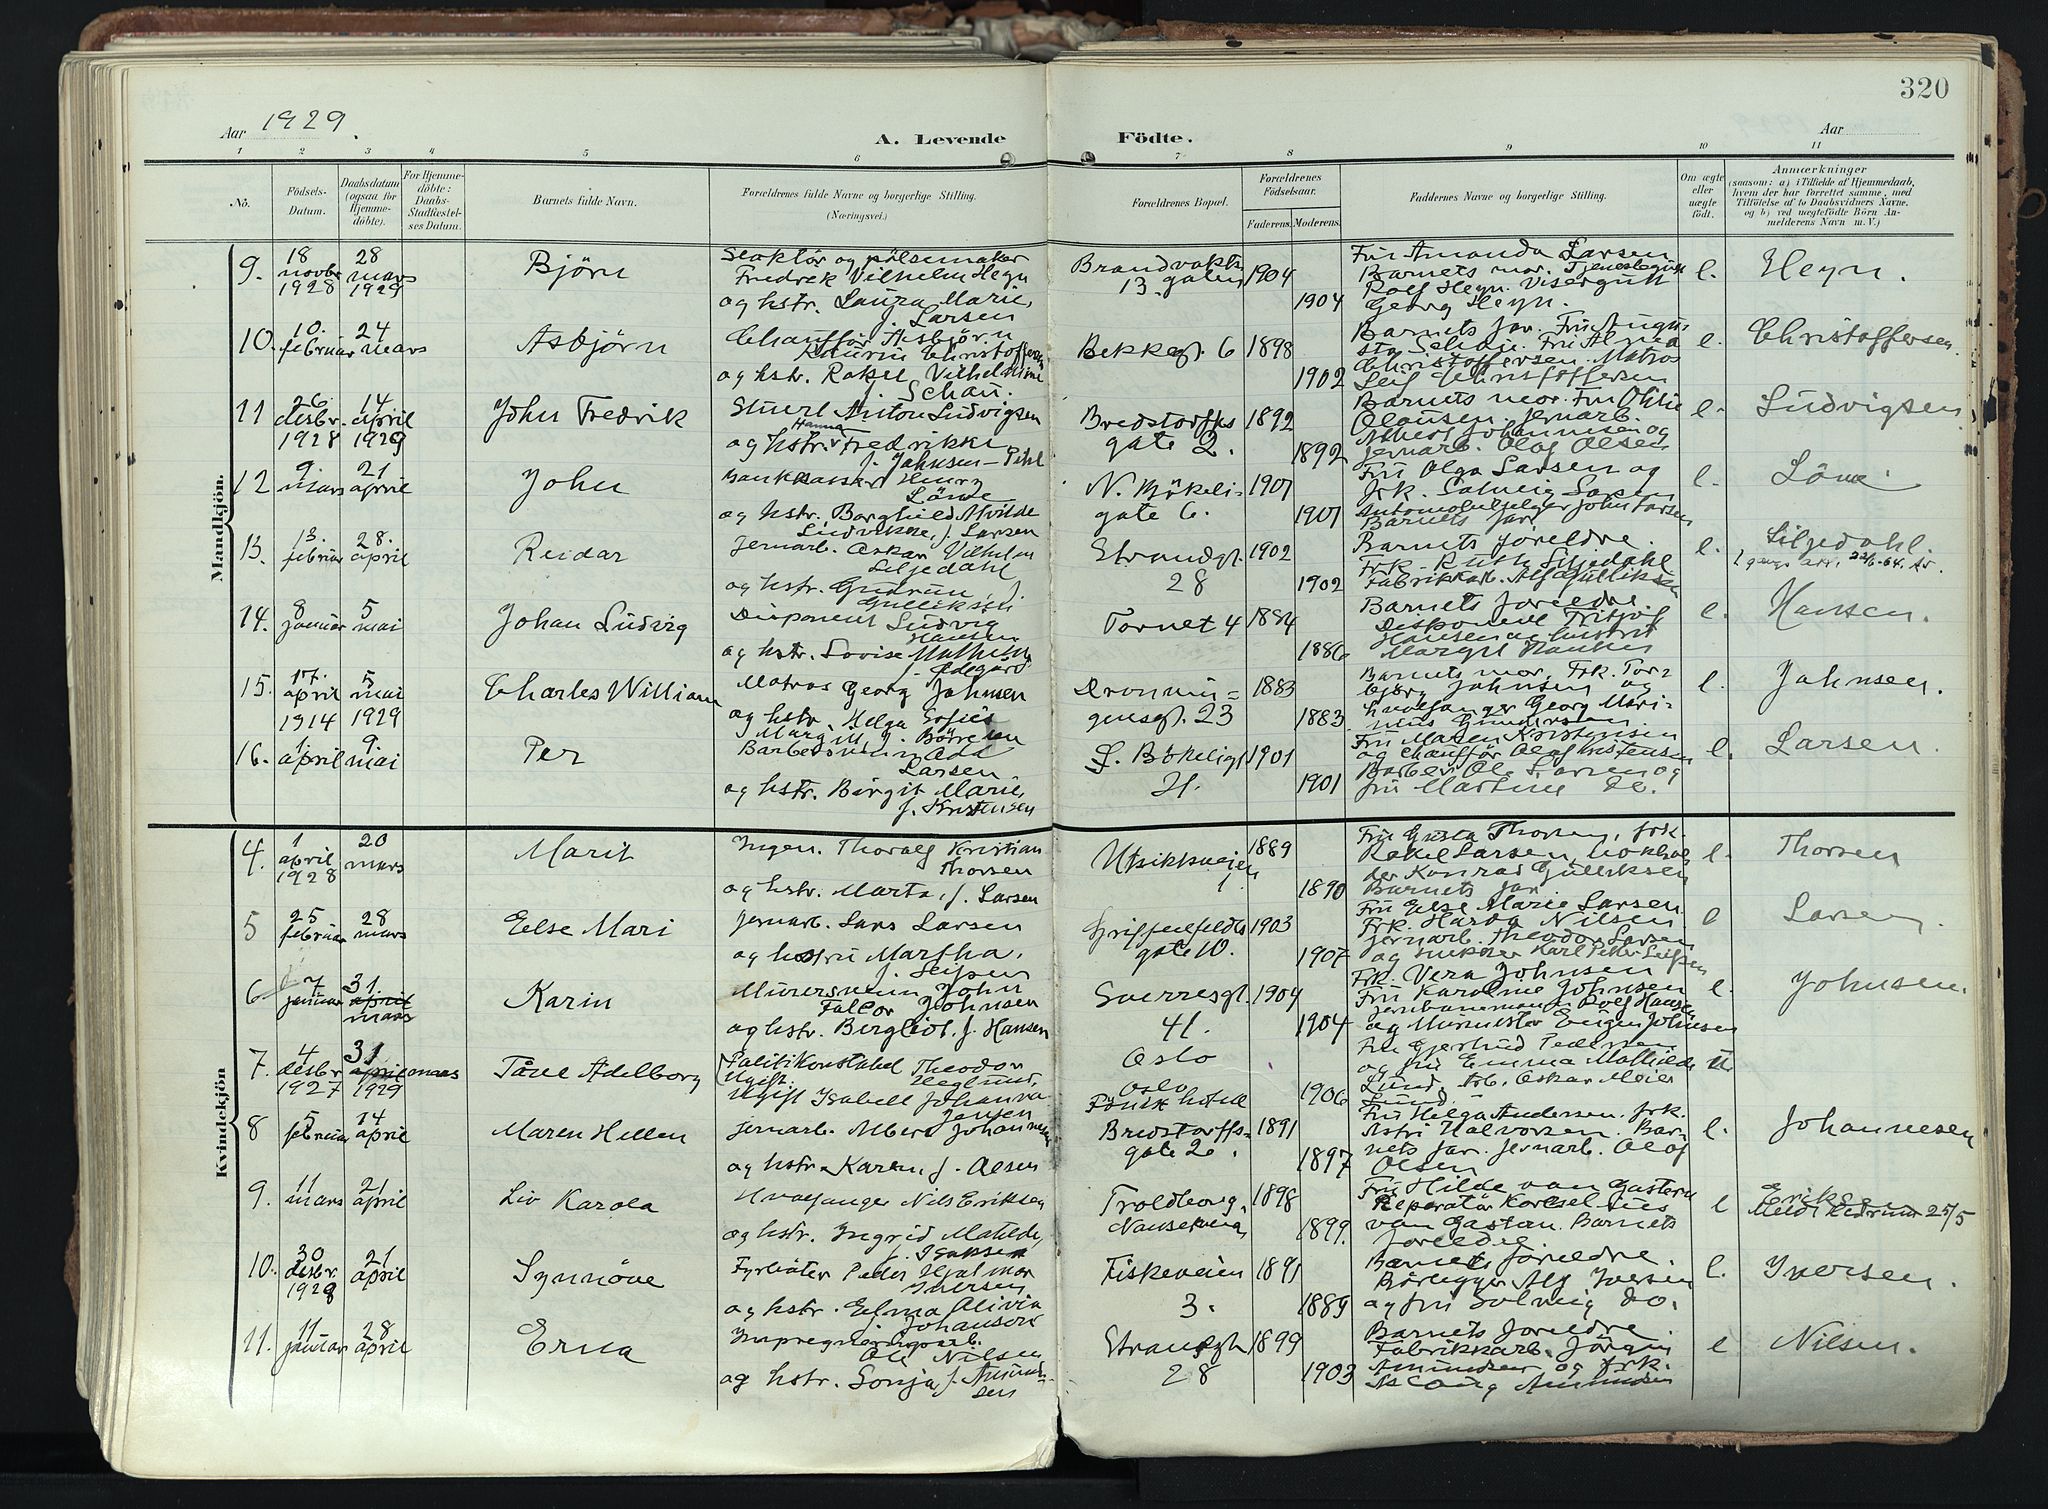 320
Aar 1929.
A. Levende Födte.
Aar
1 2 3 4 5 6 7 8 9 10 11
Nö.
Födsels-Datum.
Daabsdatum (ogsaa for Hjemmedöbte).
For Hjemmedöbte: Daabs-Stadfæstelses Datum.
Barnets fulde Navn.
Forældrenes fulde Navne og borgerlige Stilling. (Næringsvei.)
Forældrenes Bopæl.
Forældrenes Födselsaar.
Faderens. Moderens.
Faddernes Navne og borgerlige Stilling.
Om ægte eller uægte födt.
Anmærkninger
(saasom: a) i Tilfælde af Hjemmedaab, hvem der har forrettet samme, med Tilföielse af to Daabsvidners Navne. og b) ved uægtefödte Börn Anmelderens Navn m. V.)
Mandkjön.
9. 18 novbr 1928 28 mars 1929 Björn
Fredrik Vilhelm Heyn
og hstr. Laura Marie, f. Larsen
Brandvakts 13. gaten 1904 1904
Fru Amanda Larsen
Barnets mor. Tjenestegutt
Rolf Heyn. Visergutt
Georg Heyn.
l. Heyn.
10. 10. februar 24 mars Asbjörn
Chaufför Asbjörn
Christoffersen
og hstr. Rakel Vilhelmine f. Schau.
Bekkegt. 6 1898 1902
Barnets far. Fru
Christoffersen. Matros
Leif Christoffersen
l. Christoffersen.
11 26 desbr. 1928 14 april 1929 John Fredrik
Anton Ludvigsen
og hstr. Hanna Fredrikke
f. Johnsen-Pihl
Bredstorffs gate 2. 1892 1892
Barnets mor. Fru
Olausen. Jernarb.
Albert Johannesen og
jernarb. Olaf Olsen
l. Ludvigsen
12 9. mars 21 april John
Henry Löwe
og hstr. Borghild Alvilde
f. Larsen
gate 6. 1901 1901
Fru Olga Larsen og
frk. Solveig Larsen
John Larsen
Barnets far
l. Löwe
13. 13. februar 28. april Reidar
Jernarb. Oskar Vilhelm
Liljedahl
og hstr. Gudrun, f.
Gulliksen
Strandgt. 28 1902 1902
Barnets foreldre.
Frk. Ruth Liljedahl
Fabrikkarb. Alf Gulliksen
l. Liljedahl.
14. 8 januar 5 mai Johan Ludvig
Disponent Ludvig
Hansen
og hstr. Lovise Mathilde
f. Ödegård
Tornet 4 1884 1886
Barnets foreldre.
Disponent Fritjof
Hansen og hustru
Margit Hansen
l. Hansen.
15. 17. april 1914 5 mai 1929 Charles William
Matros Georg Johnsen
og hstr. Helga Sofies
Margitt f. Börresen
Dronningensgt. 23 1883 1883
Barnets mor. Frk. Tor-
björg Johnsen og
hvalfanger Georg Mari-
nius Gundersen.
l. Johnsen.
16. 1 april 9 mai Per
Barbersvenn
Larsen
og hstr. Birgit Marie,
f. Kristensen
S. Bökeligt. 21. 1901 1901
Fru Maren Kristensen
og chaufför Olaf Kristensen
Barber Ole Larsen og
fru Martine do.
l. Larsen.
Kvindekjön
4. 1 april 1928 20 mars Marit
Ingen. Thoralf Kristian
Thorsen
og hstr. Marta, f. Larsen
Utsiktsveien 1. 1889 1890
Fru Gusta Thorsen, frk.
Rakel Larsen, bokhol-
der Konrad Gulliksen
Barnets far.
l. Thorsen
5 25 februar 28 mars Else Mari
Jernarb. Lars Larsen
og hustru Martha,
f. Leifsen
Griffenfeldts gate 10. 1903 1907
Fru Else Marie Larsen
Frk. Harda Nilsen
Jernarb. Theodor Larsen
og snekker Karl Peter Leifsen
l Larsen.
6 7 januar 31. april mars Karin
Murersvenn John
Fallor Johnsen
og hstr. Bergliot, f. Hansen
Sverresgt. 41. 1904 1904
Frk. Vera Johnsen
Fru Karoline Johnsen
jernbanemann Rolf Hansen
og Murmester Eugen Johnsen
l. Johnsen.
7. 4 desbr 1927 31 april mars 1929 Tove Adelborg
Politikonstabel Theodor
Ugift. Heglund,
Ugift Isabell Johanna
Jensen
Oslo
Oslo
Fönix hotell
1906
Fru Gjertrud Pedersen
og fru Emma Mathilde
Lund. Arb. Oskar Meier
Lund.
u
8 5 februar 14 april Maren Hellen
Jernarb. Albert Johannesen
og hstr. Karen, f. Olsen
Bredstorffs gate 2. 1891 1897
Fru Helga Andersen. frk.
Astri Halvorsen. Bar-
nets far. jernarb. Olaf
Olsen
l. Johannesen
9. 11 mars 21 april Liv Karola
Hvalfanger Nils Eriksen
og hstr. Ingrid Matilde,
f. Isaksen
Troldborg, Nansetveien 1898 1899.
Fru Hilde van Gasteren
Reparatör
van Gastan. Barnets
foreldre.
l 25/5
10. 30 desbr. 1928 21 april Synnöve
Fyrböter Peder Hjalmar
Iversen
og hstr. Elma Olivia
f. Johansen
Fiskeveien 3. 1891 1889
Barnets foreldre.
Börlegger Alf Iversen
og fru Solveig do.
l. Iversen.
11. 11 januar 28 april Erna
Impregneringsarb.
Nilsen
og hstr. Sonja f. Amund-
sen
Strandgt. 28 1899 1903
Barnets foreldre.
Fabrikkarb. Jörgen
Amundsen og frk.
Amundsen
l Nilsen.